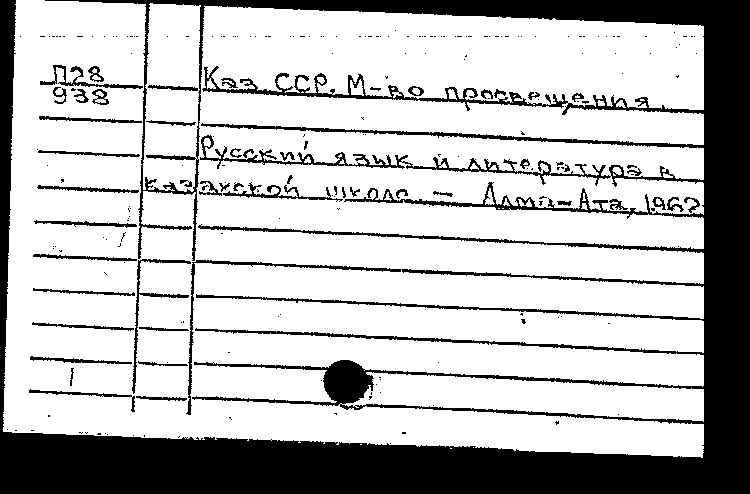 П28
938
Каз. ССР. М-во просвещения.
Русский язык и литература в
казахской школе — Алма-Ата, 1962